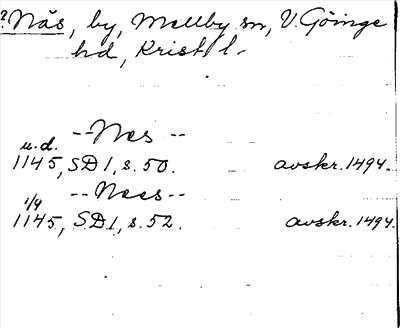 ?Näs, by, Mellby sn, V. Göinge
hd, Krist l.
--Nes--
u.d.
1145, SD 1, s. 50. avskr. 1494.
--Nees--
1/9
1145, SD 1, s. 52. avskr. 1494.